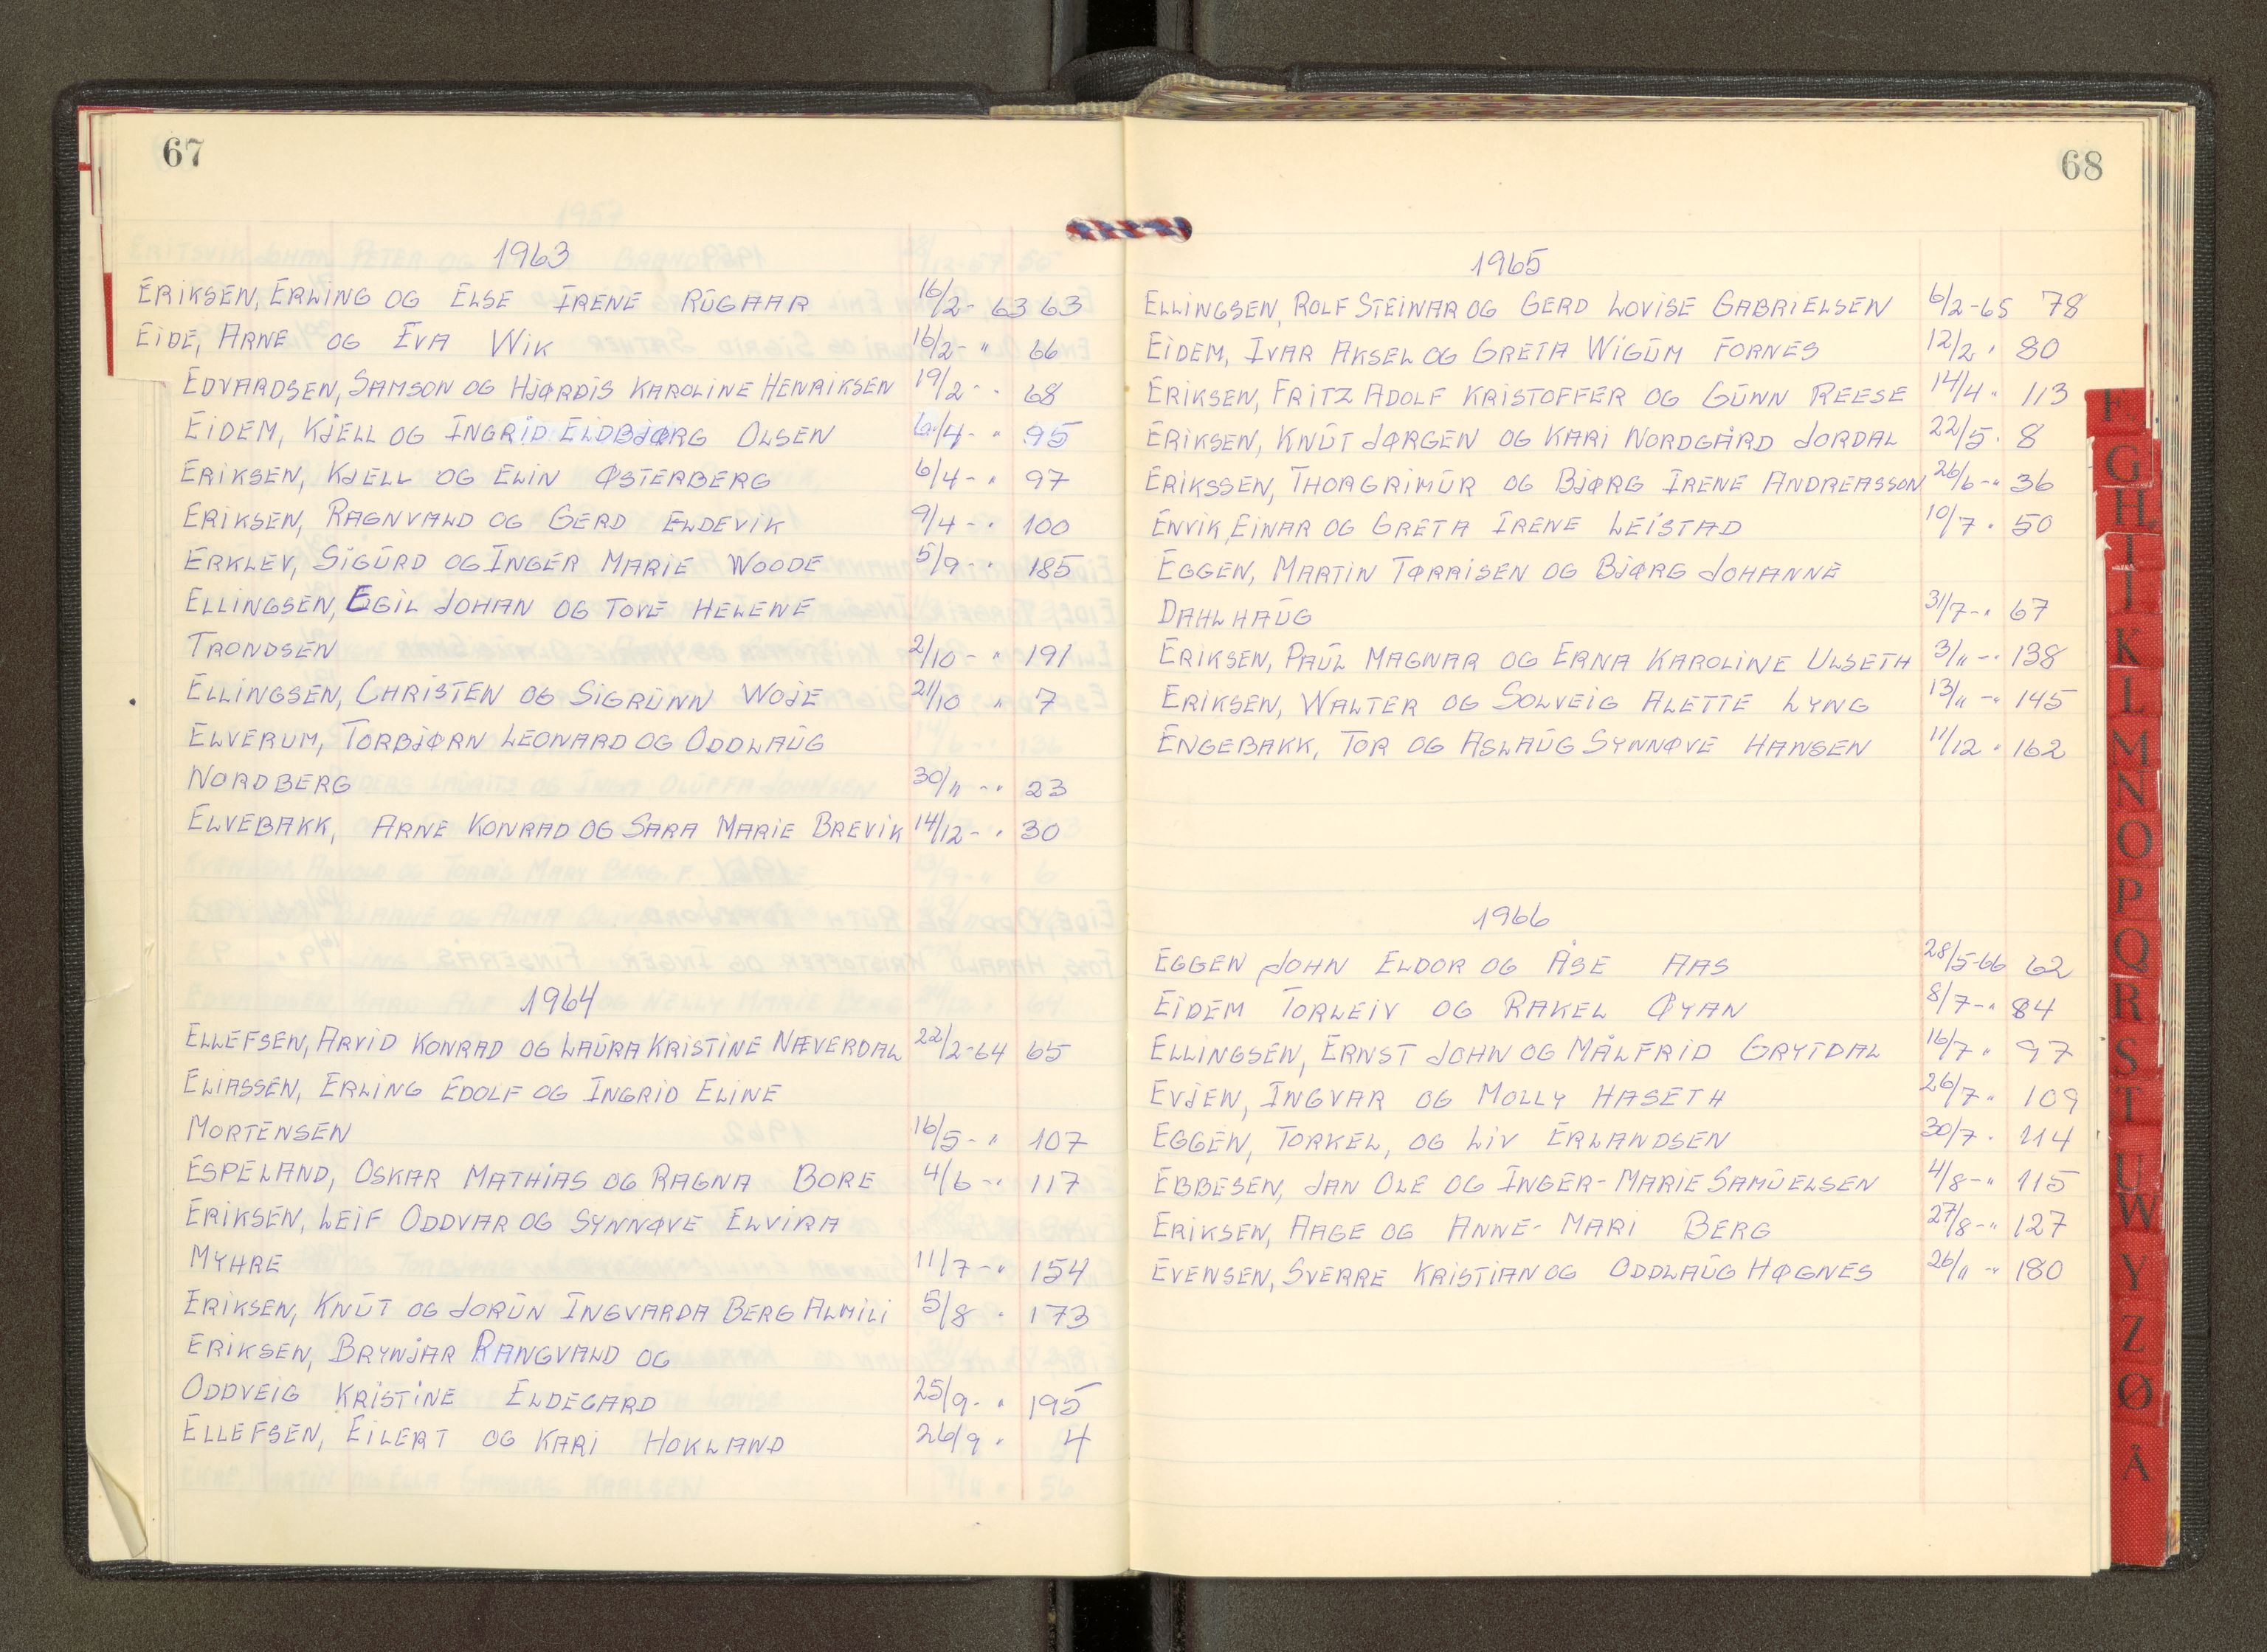 67
1963
ERIKSEN, ERLING OG ELSE IRENE RUGAAR 16/2- 63 63
EIDE, ARNE OG EVA WIK 16/2- " 66
EDVARDSEN, SAMSON OG HJØRDIS KAROLINE HENRIKSEN 19/2- " 68
EIDEM, KJELL OG INGRID ELDBJØRG OLSEN 6/4- " 95
ERIKSEN, KJELL OG ELIN ØSTERBERG 6/4- " 97
ERIKSEN, RAGNVALD OG GERD ELDEVIK 9/4- " 100
ERKLEV, SIGURD OG INGER MARIE WOODE 5/9- " 185
ELLINGSEN, EGIL JOHAN OG TOVE HELENE
TRONDSEN 2/10- " 191
ELLINGSEN, CHRISTEN OG SIGRUNN WOJE 21/10 " 7
ELVERUM, TORBJØRN LEONARD OG ODDLAUG
NORDBERG 30/11 - " 23
ELVEBAKK, ARNE KONRAD OG SARA MARIE BREVIK 14/12- " 30
1964
ELLEFSEN, ARVID KONRAD OG LAURA KRISTINE NÆVERDAL 22/2-64 65
ELIASSEN, ERLING EDOLF OG INGRID ELINE
MORTENSEN 16/5- " 107
ESPELAND, OSKAR MATHIAS OG RAGNA BORE 4/6- " 117
ERIKSEN, LEIF ODDVAR OG SYNNØVE ELVIRA
MYHRE 11/7- " 154
ERIKSEN, KNUT OG JORUN INGVARDA BERG ALMILI 5/8 " 173
ERIKSEN, BRYNJAR RANGVALD OG
ODDVEIG KRISTINE ELDEGARD 25/9- " 195
ELLEFSEN, EILERT OG KARI HOKLAND 26/9 " 4
68
1965
ELLINGSEN, ROLF STEINAR OG GERD LOVISE GABRIELSEN 6/2-65 78
EIDEM, IVAR AKSEL OG GRETA WIGUM FORNES 12/2 " 80
ERIKSEN, FRITZ ADOLF KRISTOFFER OG GUNN REESE 14/4 " 113
ERIKSEN, KNUT JØRGEN OG KARI NORDGÅRD JORDAL 22/5 " 8
ERIKSSEN, THORGRIMUR OG BJØRG IRENE ANDREASSON 26/6-" 36
ENVIK, EINAR OG GRETA IRENE LEISTAD 10/7 " 50
EGGEN, MARTIN TØRRISEN OG BJØRG JOHANNE
DAHLHAUG 31/7-" 67
ERIKSEN, PAUL MAGNAR OG ERNA KAROLINE ULSETH 3/11 -" 138
ERIKSEN, WALTER OG SOLVEIG ALETTE LYNG 13/11 -" 145
ENGEBAKK, TOR OG ASLAUG SYNNØVE HANSEN 11/12 " 162
1966
EGGEN JOHN ELDOR OG ÅSE AAS 28/5-66 62
EIDEM TORLEIV OG RAKEL ØYAN 8/7-" 84
ELLINGSEN, ERNST JOHN OG MÅLFRID GRYTDAL 16/7 " 97
EVJEN, INGVAR OG MOLLY HASETH 26/7 " 109
EGGEN, TORKEL, OG LIV ERLANDSEN 30/7 " 114
EBBESEN, JAN OLE OG INGER-MARIE SAMUELSEN 4/8-" 115
ERIKSEN, AAGE OG ANNE-MARI BERG 27/8-" 127
EVENSEN, SVERRE KRISTIAN OG ODDLAUG HØGNES 26/11 -" 180
G
H
I
K
L
M
N
O
P
Q
R
S
T
U
W
Y
Z
Ø
Å